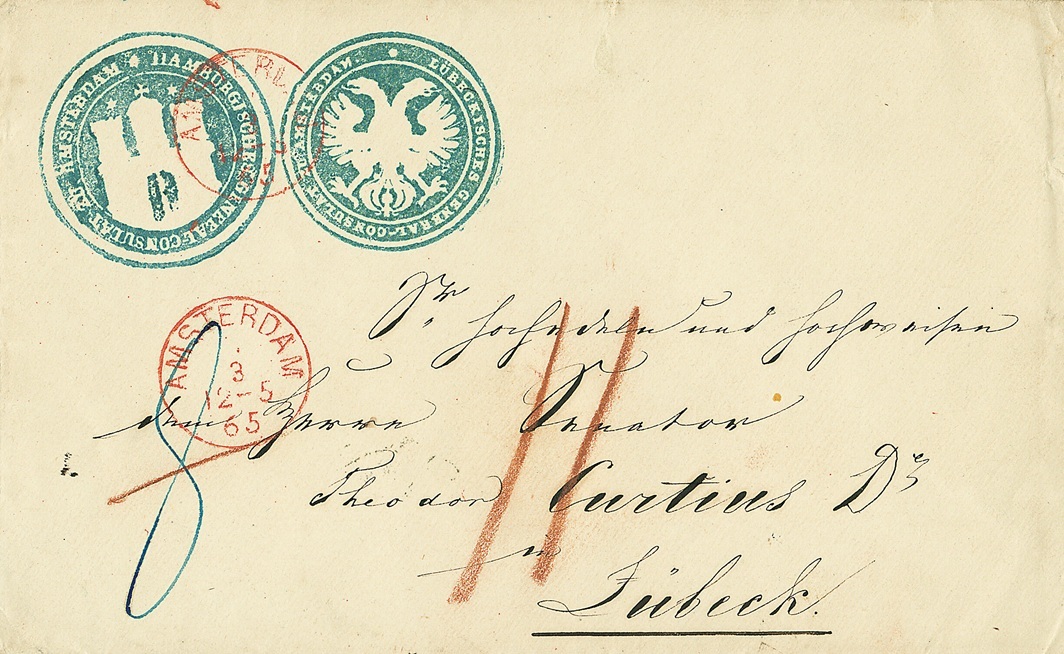 HAMBURGISCHES GENERAL-CONSULAT IN AMSTERDAM
LÜBECKISCHES GENERAL-CONSULAT IN AMSTERDAM.
AMSTERDAM
3
12-5
65
8
Sr. Hochedeln und Hochweisen
dem Herrn Senator
Theodor Curtius Dr
in
Lübeck.